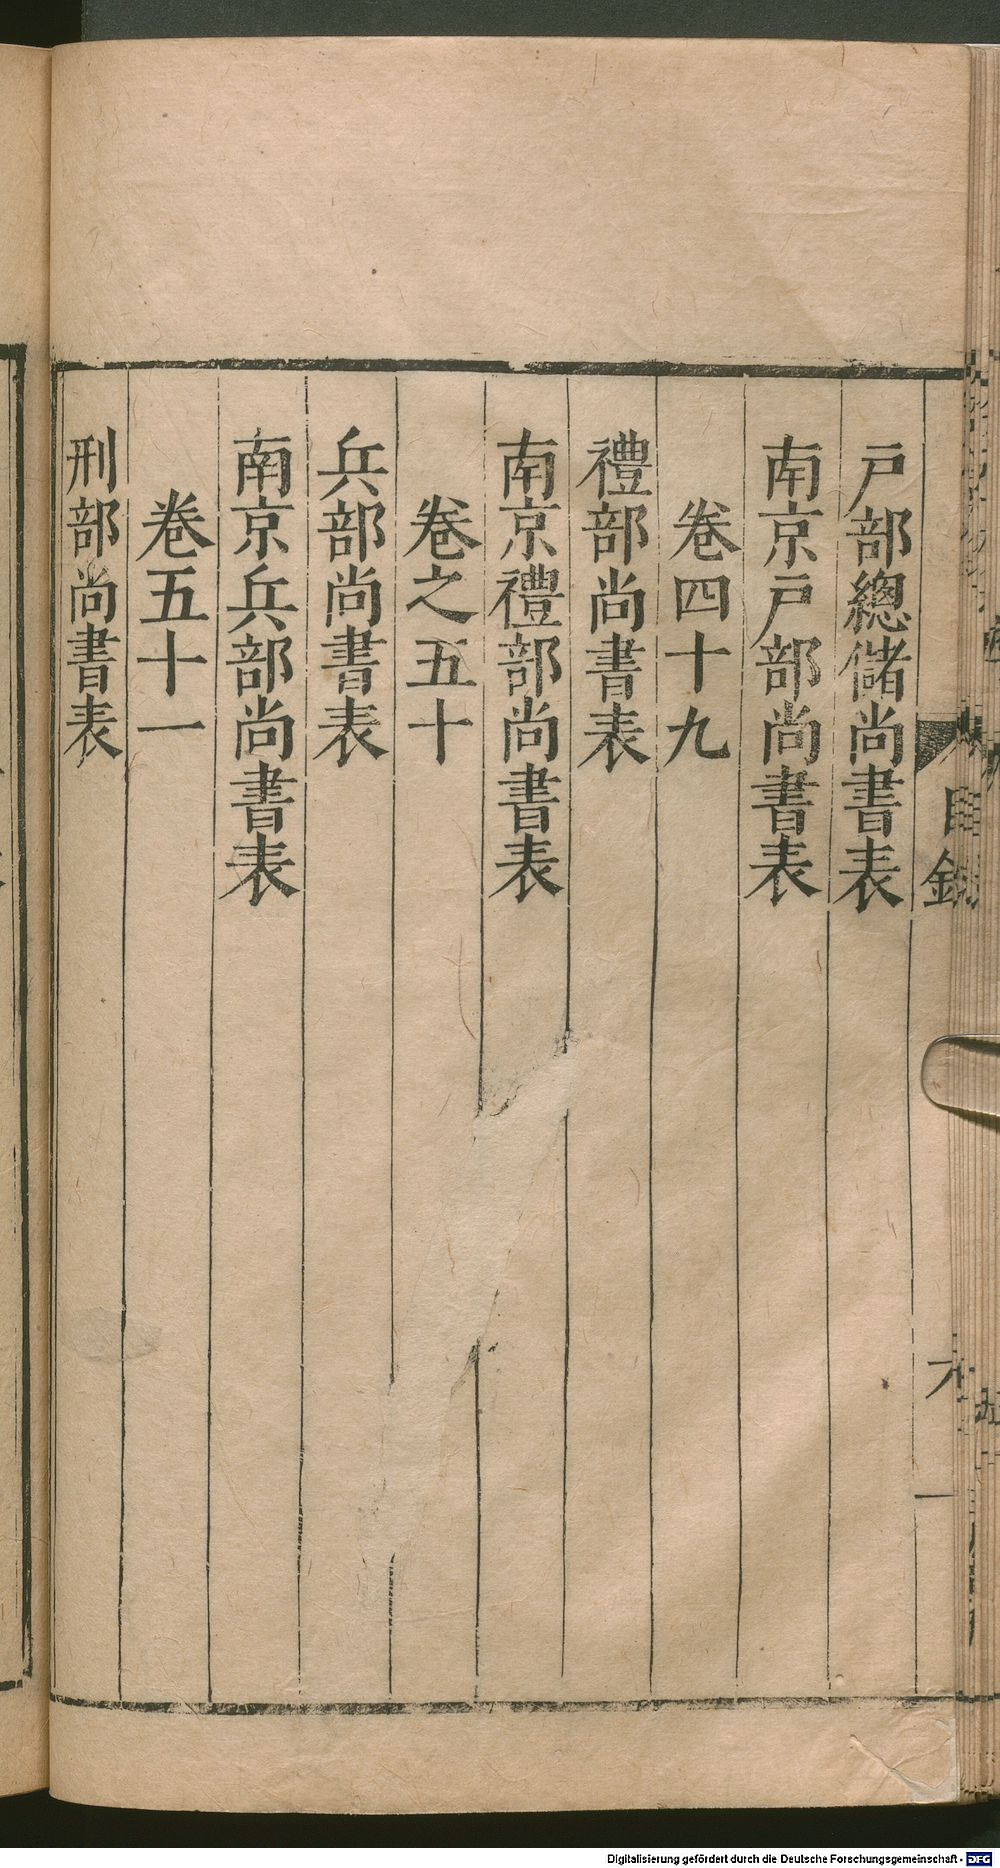 目錄
戶部總儲尚書表
南京戶部尚書表
卷四十九
禮部尚書表
南京禮部尚書表
卷之五十
兵部尚書表
南京兵部尚書表
卷五十一
刑部尚書表
Digitalisierung gefördert durch die Deutsche Forschungsgemeinschaft - DFG